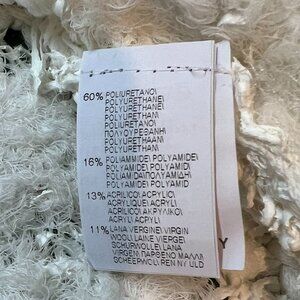 60% POLIURETANO\
POLYURETHANE\
POLYURETHANE\
POLYURETHAN\
POLIURETANO\
ΠΟΛΥΟΥΡΕΘΑΝΗ\
POLYURETHAAN\
POLYURETHAN\
16% POLIAMMIDE\ POLYAMIDE\
POLYAMIDE\ POLYAMID\
POLIAMIDA\ΠΟΛΥΑΜΙΔΗ\
POLYAMIDE\ POLYAMID
13% ACRILICO\ ACRYLIC\
ACRYLIQUE\ ACRYL\
ACRILICO\ ΑΚΡΥΛΙΚΟ\
ACRYL\ ACRYL
11% LANA VERGINE\ VIRGIN
WOOL\ LAINE VIERGE\
SCHURWOLLE\ LANA
VIRGEN\ ΠΑΡΘΕΝΟ ΜΑΛΛΙ\
SCHEERWOL\ REN NY ULD
Y